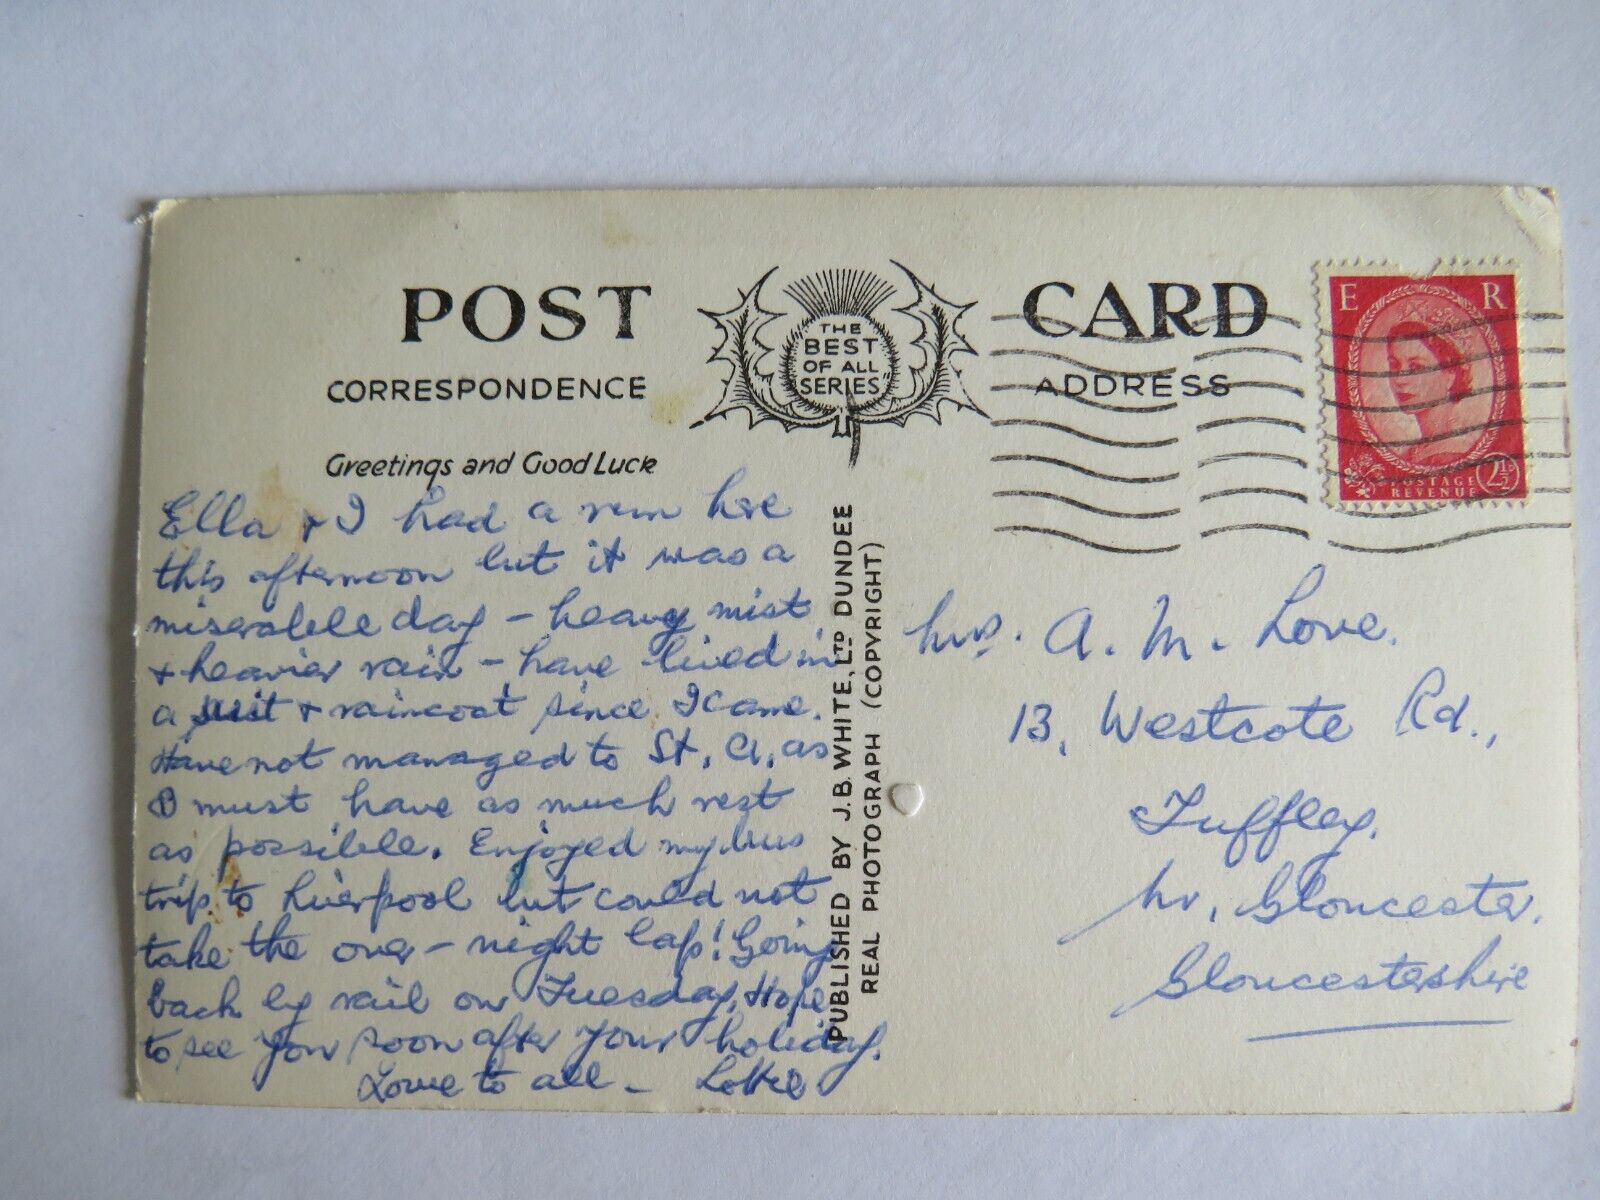 POST CARD
THE
BEST
OF ALL
SERIES"
CORRESPONDENCE
ADDRESS
Greetings and Good Luck
E R
POSTAGE
REVENUE
2½
Ella & I had a run here
this afternoon but it was a
miserable day - heavy mist
& heavier rain - have lived in
a suit & raincoat since I came.
Have not managed to St. A. as
I must have as much rest
as possible. Enjoyed my bus
trip to Liverpool but could not
take the over-night lap! Going
back by rail on Tuesday. Hope
to see you soon after your holiday.
Love to all - Lottie
PUBLISHED BY J.B. WHITE, LTD DUNDEE
REAL PHOTOGRAPH (COPYRIGHT)
Mrs. A. M. Love.
13, Westcote Rd.,
Tuffley.
Nr. Gloucester.
Gloucestershire